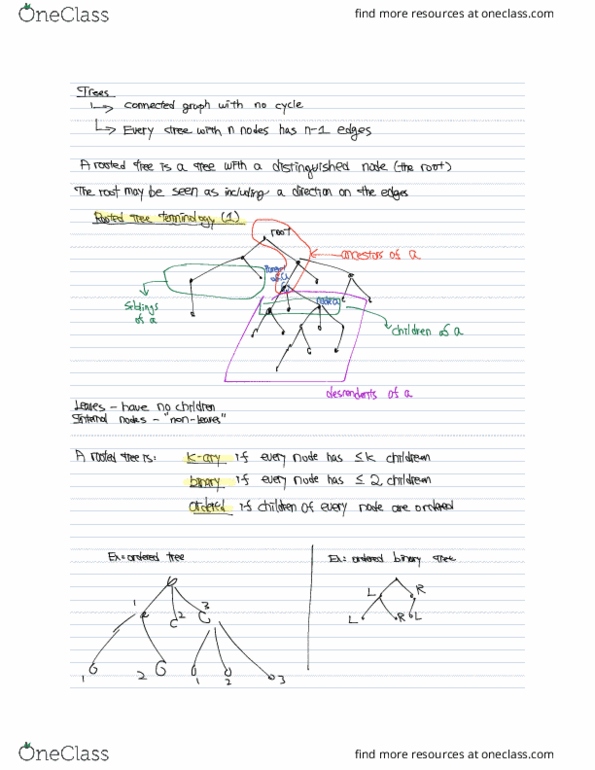 OneClass
find more resources at oneclass.com
Trees
connected graph with no cycle
Every tree with n nodes has n-1 edges
A rooted tree is a tree with a distinguished node (the root)
The root may be seen as including a direction on the edges
Rooted tree terminology (1)
root
ancestors of a
siblings of a
children of a
descendents of a
Leaves - have no children
Internal nodes - "non-leaves"
A rooted tree is: k-ary if every node has ≤k children
binary if every node has ≤ 2 children
ordered if children of every node are ordered
Ex: ordered tree
Ex: ordered binary tree
1 2 3
1 2 1 2 3
L R
L R L
OneClass
find more resources at oneclass.com